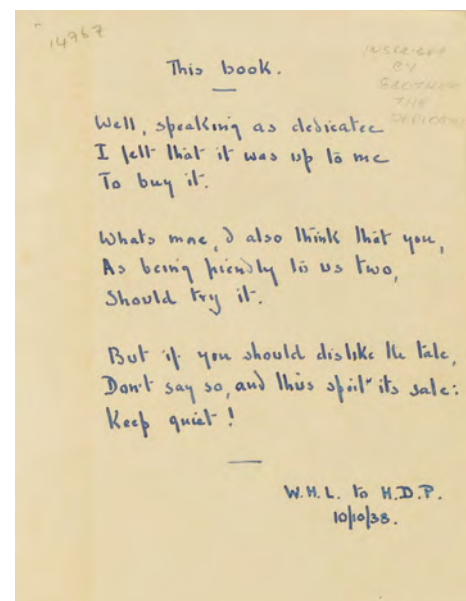 14967
INSCRIBED
BY
BROTHER
THE
This book.
Well, speaking as dedicatee
I felt that it was up to me
To buy it.
Whats more, I also think that you,
As being friendly to us two,
Should try it.
But if you should dislike the tale,
Don't say so, and thus spoil its sale:
Keep quiet!
W.H.L. to H.D.P.
10/10/38.